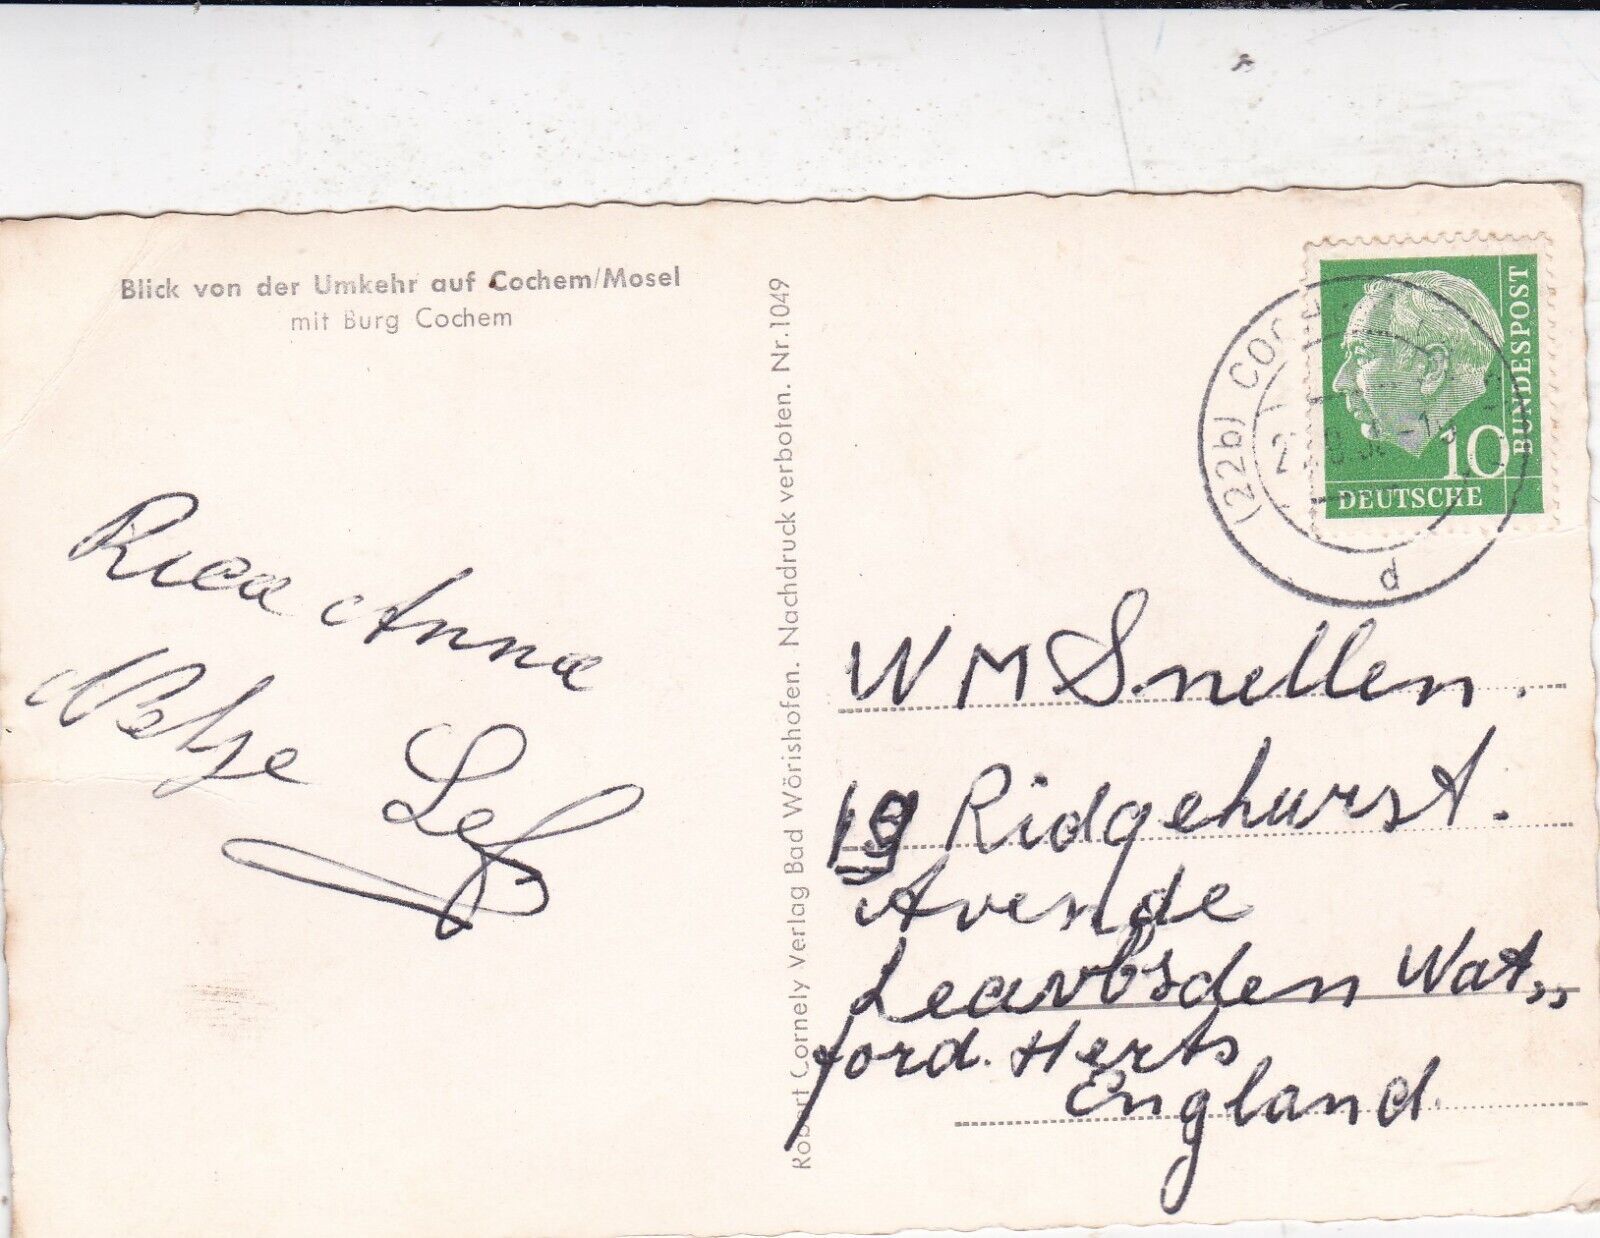 Blick von der Umkehr auf Cochem/Mosel
mit Burg Cochem
Anna
Robert Cornely Verlag Bad Wörishofen. Nachdruck verboten. Nr. 1049
BUNDESPOST
10
DEUTSCHE
(22b) COCHEM
d
W M Snellen.
19 Ridgehurst.
Avende
Leavbsden Wat„
ford. Herts
England.